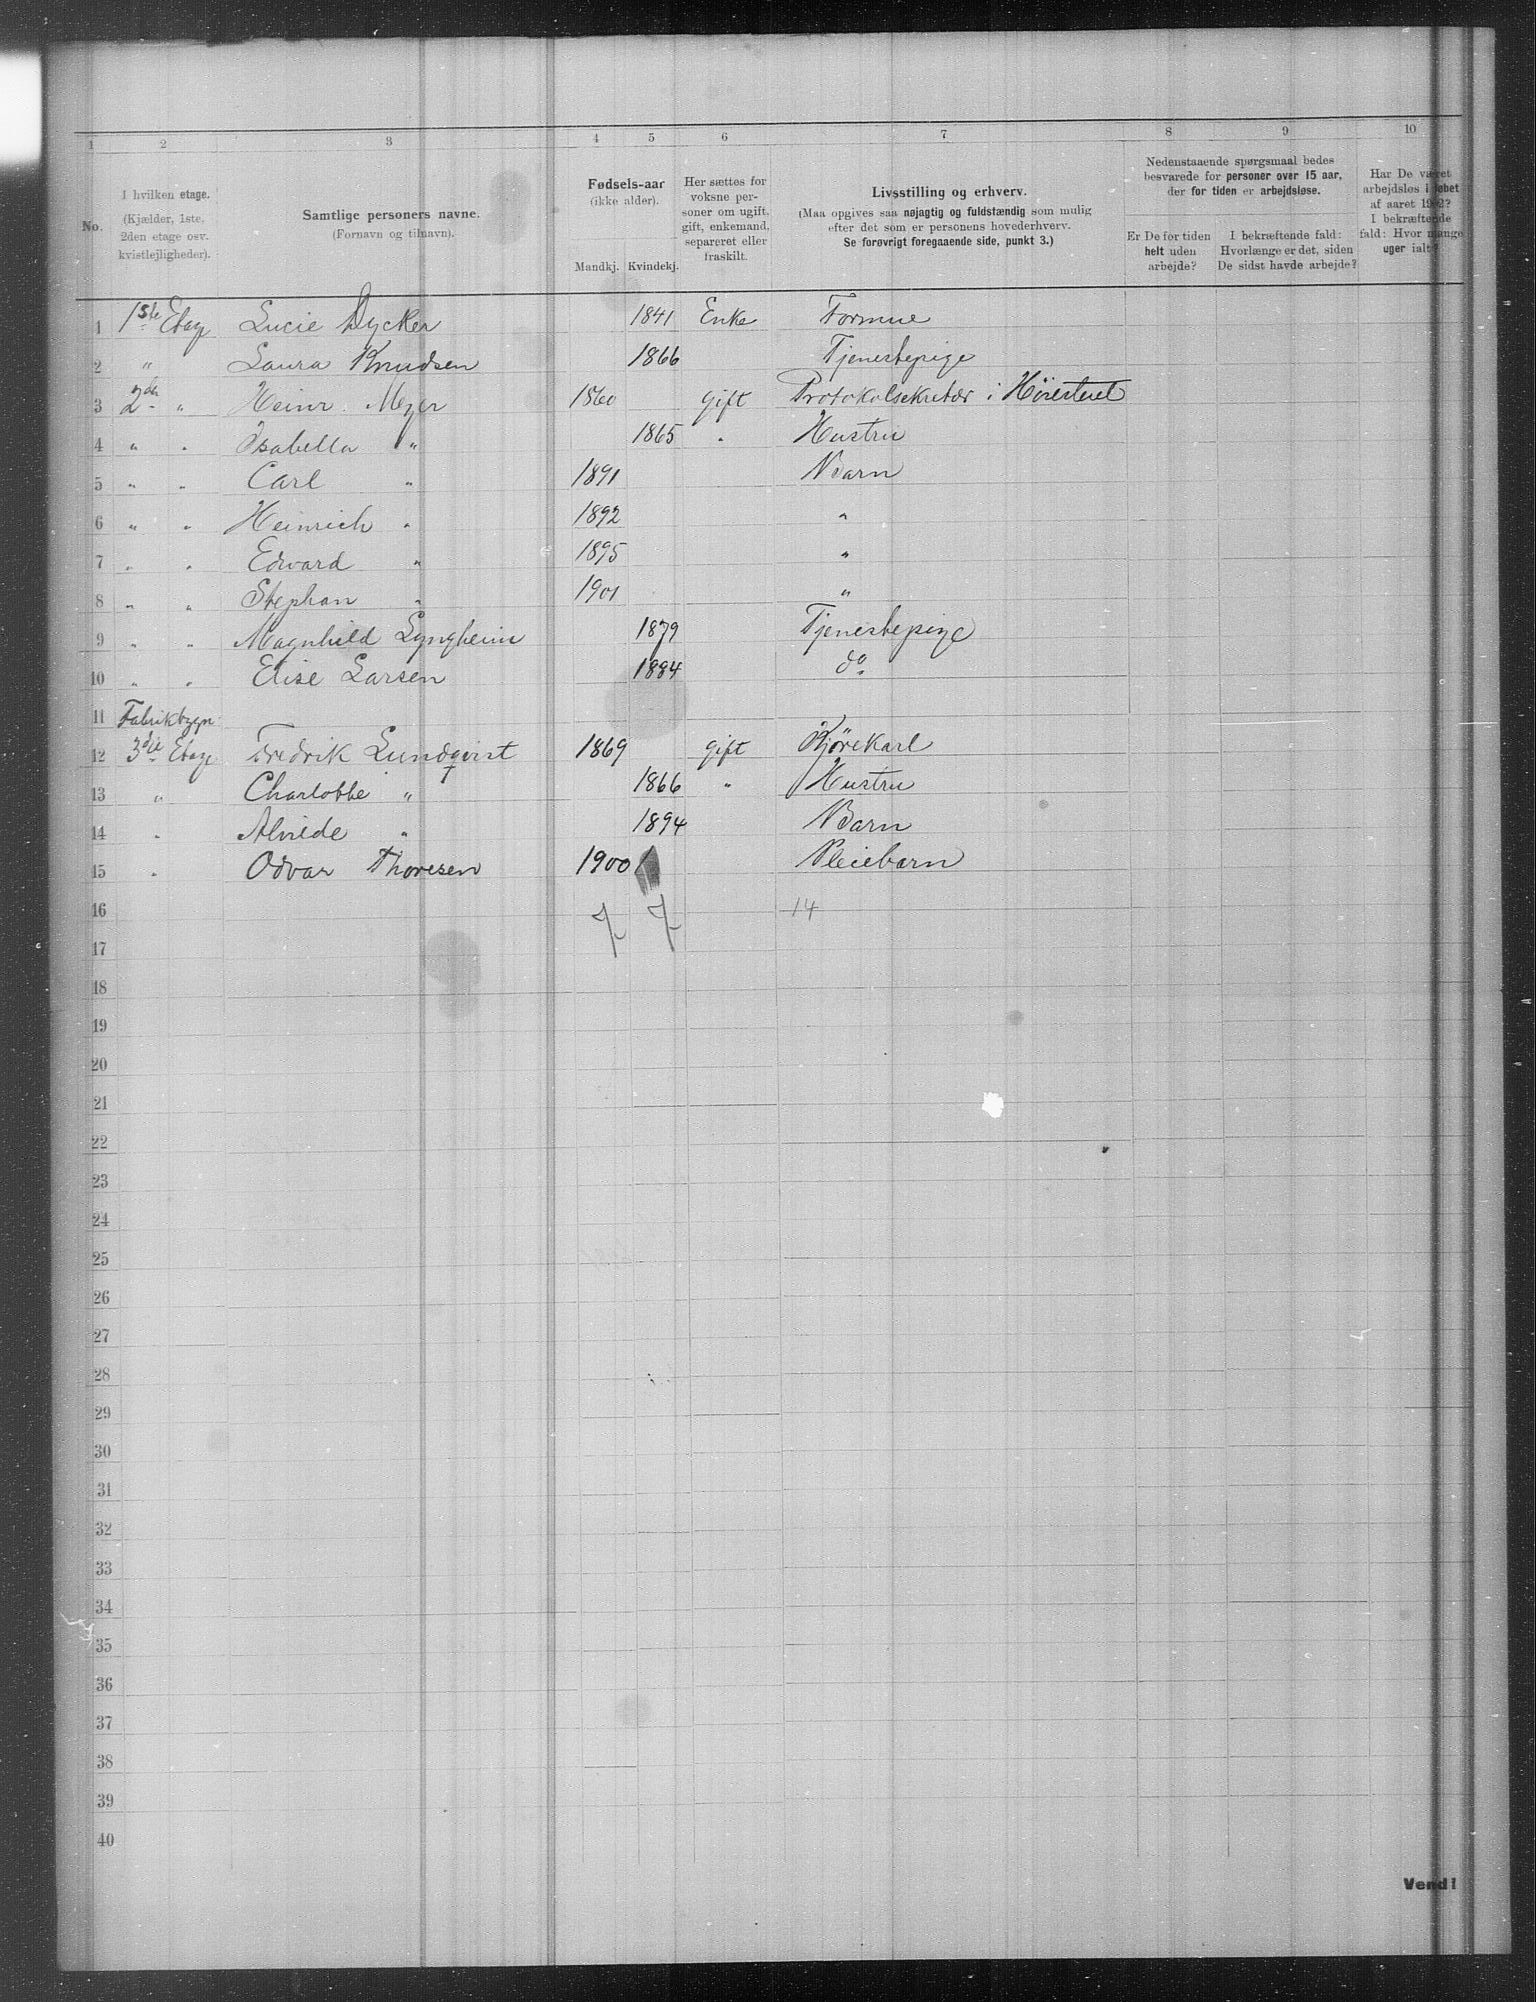 1 2 3 4 5 6 7 8 9 10
No.
I hvilken etage.
(Kjælder, 1ste,
2den etage osv.
kvistlejligheder).
Samtlige personers navne.
(Fornavn og tilnavn).
Fødsels-aar
(ikke alder).
Mandkj. Kvindekj.
Her sættes for
voksne per-
soner om ugift,
gift, enkemand,
separeret eller
fraskilt.
Livsstilling og erhverv.
(Maa opgives saa nøjagtig og fuldstændig som mulig
efter det som er personens hovederhverv.
Se forøvrigt foregaaende side, punkt 3.)
Nedenstaaende spørgsmaal bedes
besvarede for personer over 15 aar,
der for tiden er arbejdsløse.
Er De for tiden
helt uden
arbejde?
I bekræftende fald:
Hvorlænge er det, siden
De sidst havde arbejde?
Har De været
arbejdsløs i løbet
af aaret 1902?
I bekræftende
fald: Hvor mange
uger ialt?
1 1ste Etage Lucie Dycker 1841 Enke Formue
2 " Laura Knudsen 1866 Tjenestepige
3 2den " Heinr. Meyer 1860 gift Protokolsekretær i Høiesteret
4 " " Isabella " 1865 " Hustru
5 " " Carl " 1891 Barn
6 " " Heinrich " 1892 "
7 " " Edward " 1895 "
8 " " Stephan " 1901 "
9 " " Magnhild Lyngheim 1879 Tjenestepige
10 " " Elise Larsen 1884 do
11 Fabrikbygn.
12 3die Etage Fredrik Lundqvist 1869 gift Kjørekarl
13 " Charlotte " 1866 " Hustru
14 " Alvilde " 1894 Barn
15 " Odvar Thoresen 1900 Pleiebarn
16 7 7 14
17
18
19
20
21
22
23
24
25
26
27
28
29
30
31
32
33
34
35
36
37
38
39
40
Vend!